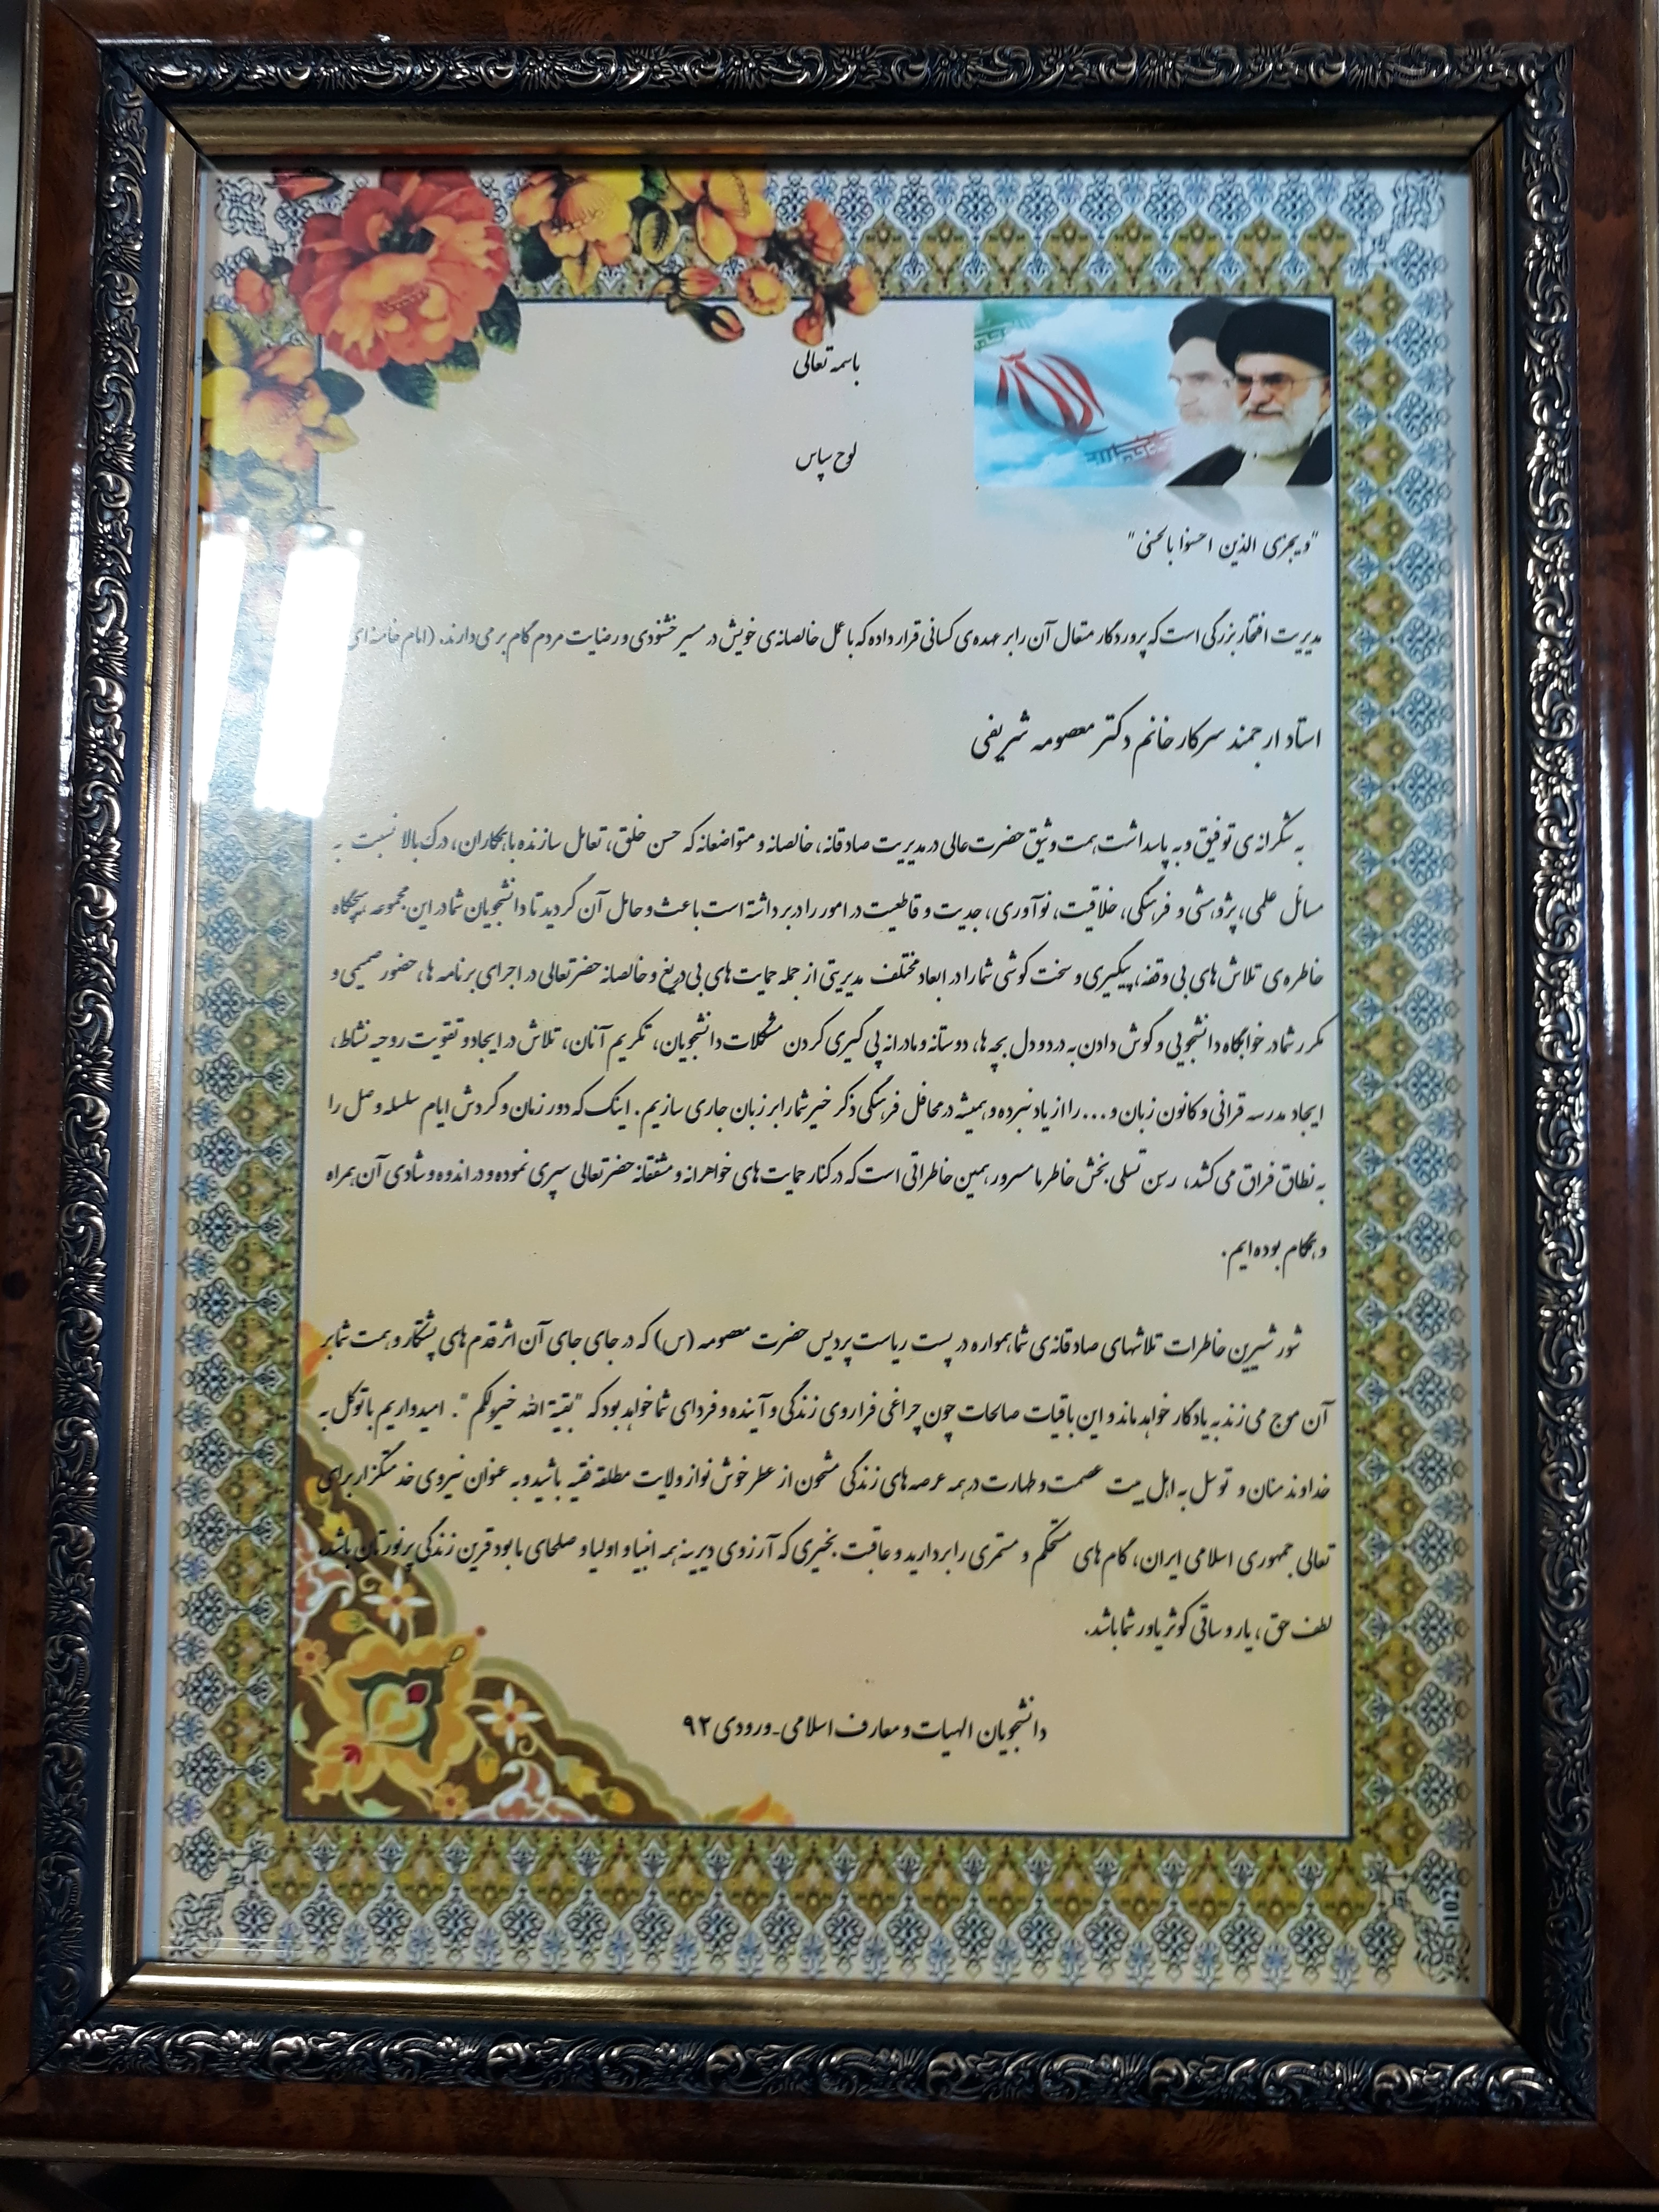 باسمه تعالی
لوح سپاس
"ویجزی الذین احسنوا بالحسنی"
مدیریت افتخار بزرگی است که پروردگار متعال آن را بر عهده‌ی کسانی قرار داده که با عمل خالصانه‌ی خویش در مسیر خشنودی و رضایت مردم گام برمی‌دارند. (امام خامنه‌ای
استاد ارجمند سرکار خانم دکتر معصومه شریفی
به شکرانه‌ی توفیق و به پاسداشت همت وثیق حضرت عالی در مدیریت صادقانه، خالصانه و متواضعانه که حسن خلق، تعامل سازنده با همکاران، درک بالا نسبت به
مسائل علمی، پژوهشی و فرهنگی، خلاقیت، نوآوری، جدیت و قاطعیت در امور را دربرداشته است باعث و حامل آن گردید تا دانشجویان شما در این مجموعه هیچگاه
خاطره‌ی تلاش‌های بی وقفه، پیگیری و سخت کوشی شما را در ابعاد مختلف مدیریتی از جمله حمایت‌های بی دریغ و خالصانه حضرتعالی در اجرای برنامه ها، حضور صمیمی و
مکرر شما در خوابگاه دانشجویی و گوش دادن به درد و دل بچه ها، دوستانه و مادرانه پی گیری کردن مشکلات دانشجویان، تکریم آنان، تلاش در ایجاد و تقویت روحیه نشاط،
ایجاد مدرسه قرانی و کانون زبان و ... را از یاد نبرده و همیشه در محافل فرهنگی ذکر خیر شما را بر زبان جاری سازیم. اینک که دور زمان و گردش ایام سلسله وصل را
به نطاق فراق می کشد، تسلی بخش خاطر ما مسرور، همین خاطراتی است که در کنار حمایت‌های خواهرانه و مشفقانه حضرتعالی سپری نموده و در اندوه و شادی آن همراه
و همگام بوده ایم.
شور شیرین خاطرات تلاشهای صادقانه‌ی شما همواره در پست ریاست پردیس حضرت معصومه (س) که در جای جای آن اثر قدم های پشتکار و همت شما بر
آن موج می زند به یادگار خواهد ماند و این باقیات صالحات چون چراغی فراروی زندگی و آینده و فردای شما خواهد بود که "بقیة الله خیرلکم". امیدواریم با توکل به
خداوند منان و توسل به اهل بیت عصمت و طهارت در همه عرصه های زندگی مشحون از عطر خوش نواز ولایت مطلقه فقیه باشید و به عنوان نیروی خدمتگزار برای
تعالی جمهوری اسلامی ایران، گام های مستحکم و مستمری را بردارید و عاقبت بخیری که آرزوی دیرینه همه انبیا و اولیا و صلحای ما بود قرین زندگی پرنورتان باشد.
لطف حق، یار و ساقی کوثر یاور شما باشد.
دانشجویان الهیات و معارف اسلامی-ورودی ۹۲
1027